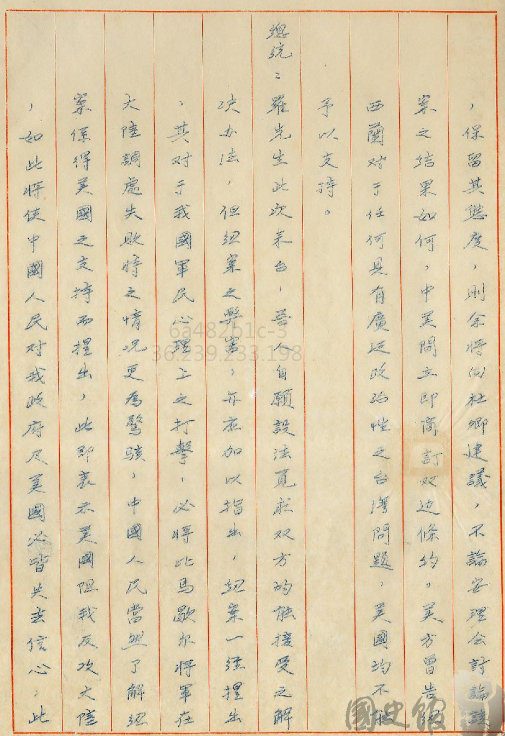 ，保留其態度，則余將向杜卿建議，不論安理会討論該
案之結果如何，中美間立即商訂双边條約。美方曾告紐
西蘭对于任何具有廣泛政治性之台灣問題，美國均不能
予以支持。
總統：羅先生此次來台，吾人自願設法覓致双方均能接受之解
决办法，但紐案之弊害，亦应加以指出，紐案一经提出
，其对于我國軍民心理上之打擊，必將比馬歇尔將軍在
大陸調處失敗時之情况更為驚駭，中國人民當然了解紐
案係得美國之支持而提出，此即表示美國阻我反攻大陸
，如此將使中國人民对我政府及美國必皆失去信心，此
國史館
6a482b1c-3
36.239.233.198